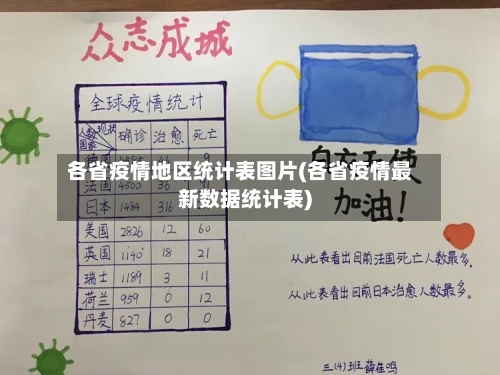 众志成城
全球疫情统计
人数 现状 确诊 治愈 死亡
国家
各省疫情地区统计表图片(各省疫情最
新数据统计表)
法国 4500
日本 1484 316
美国 2826 12 60
英国 1140 18 21
瑞士 1189 3 11
荷兰 959 0 12
丹麦 827 0 0
加油!
从此表看出目前法国死亡人数最多.
从此表看出目前日本治愈人数最多。
三(4)班